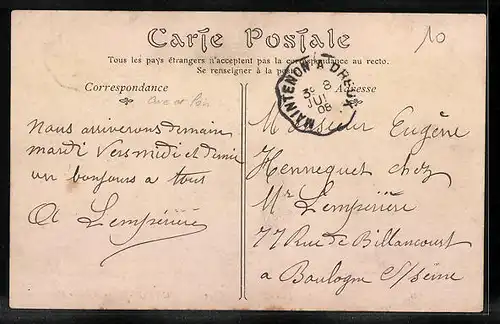 Carte Postale
Tous les pays étrangers n'acceptent pas la correspondance au recto.
Se renseigner à la poste
Correspondance
Adresse
10
MAINTENON A DREUX
3e 8
JUI
08
Nous arriverons demain
mardi vers midi et demie
un bonjours a tous
A Lemperière
Monsieur Eugène
Hennequet chez
Mr Lemperière
77 Rue de Billancourt
a Boulogne s/seine